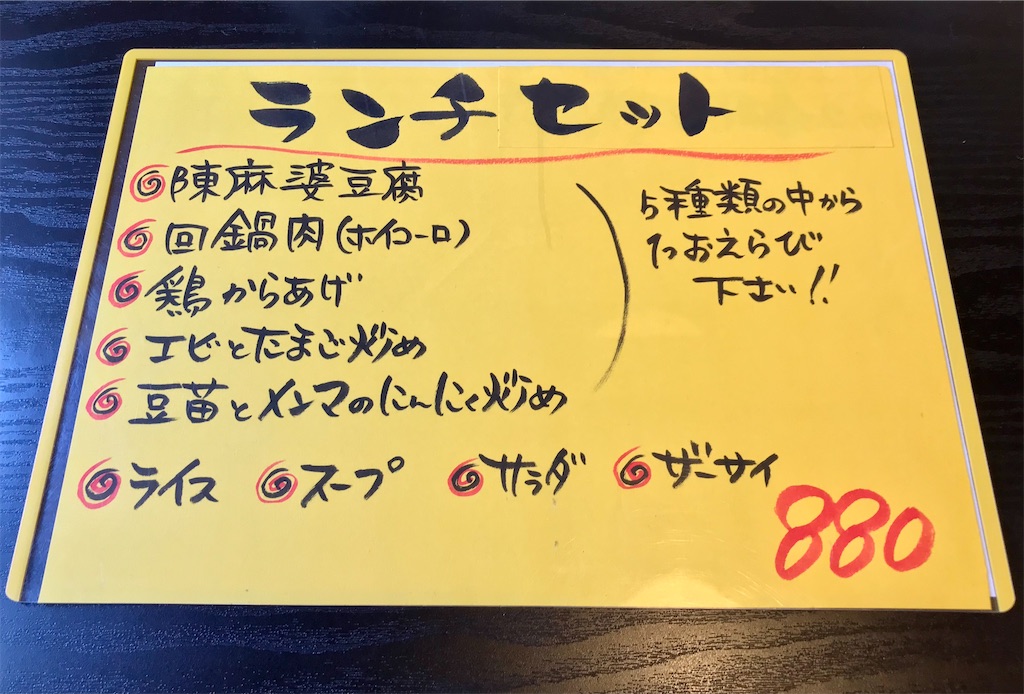 ランチセット
陳麻婆豆腐
回鍋肉(ホイコーロ)
鶏からあげ
エビとたまご炒め
豆苗とメンマのにんにく炒め
5種類の中から
1つおえらび
下さい!!
ライス スープ サラダ ザーサイ
880